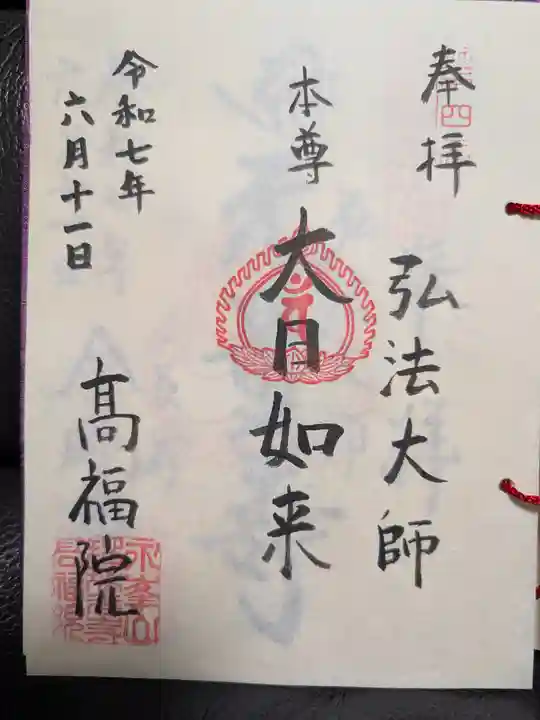 奉拝
弘法大師
本尊 大日如来
令和七年
六月十一日
髙福院